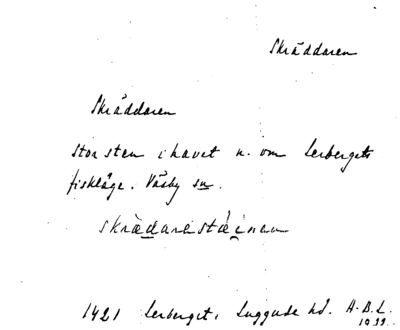 Skräddaren
Skräddaren
Stor sten i havet n. om Lerbergets
fiskläge. Väsby sn.
skrädarestäinen
1421 Lerberget, Luggude hd. A.B.L.
1933.